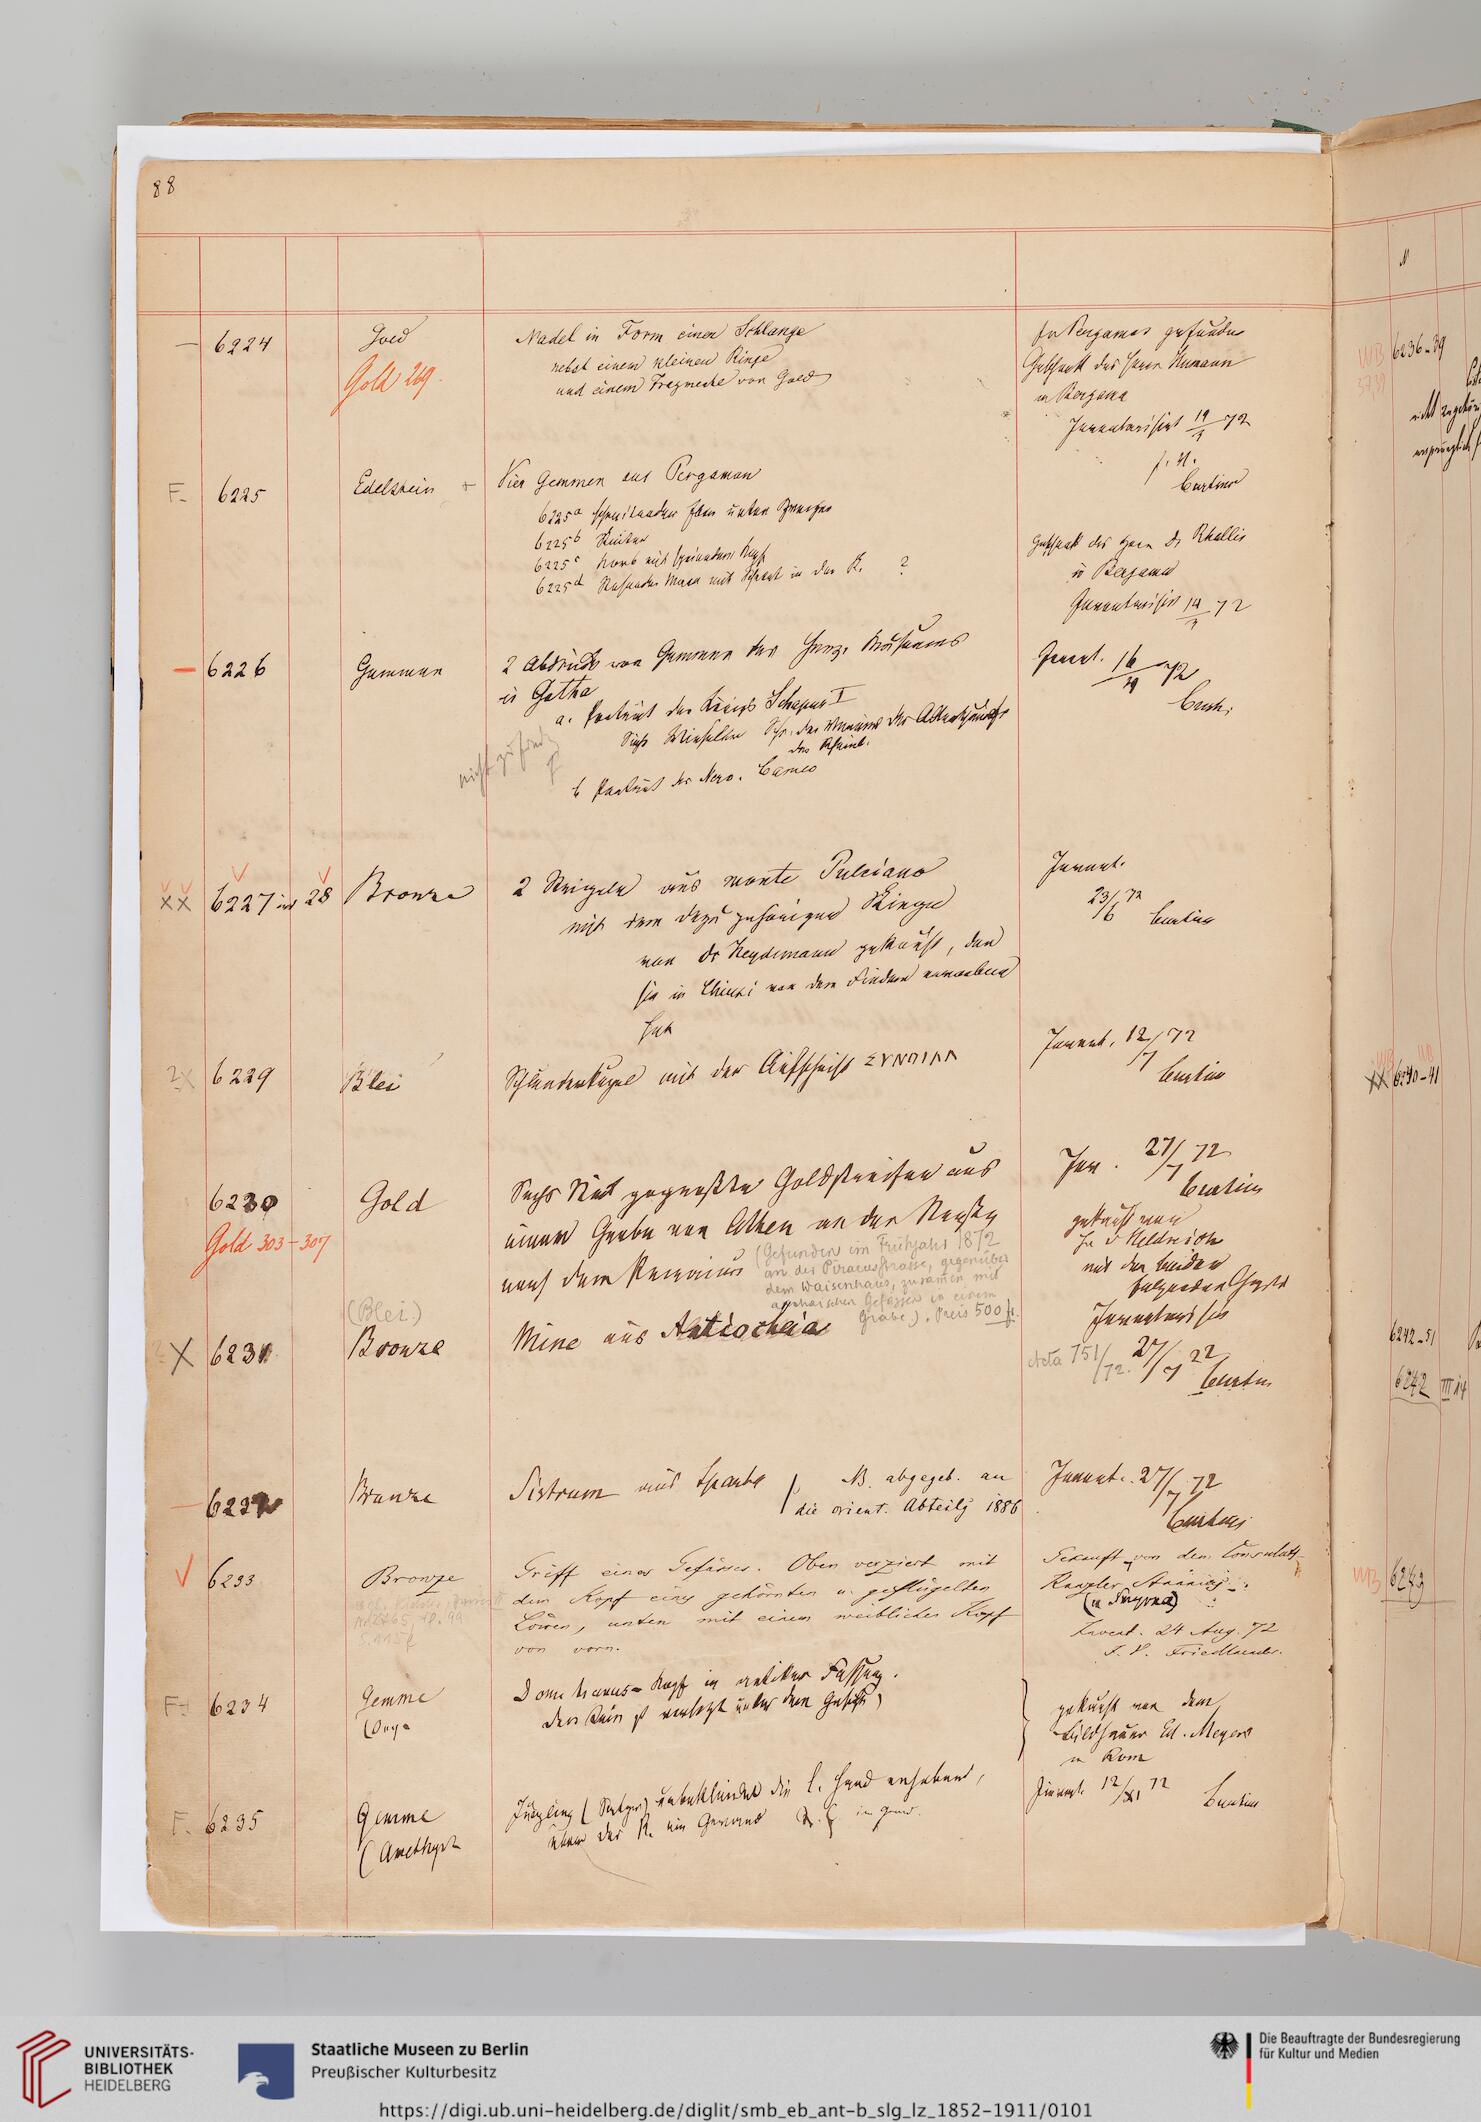 88
6224
Gold
Gold 269.
Nadel in Form einer Schlange
nebst einem kleinen Ringe
und einem Fragmente von Gold
In Pergamos gefunden
Geschenk des Herrn Humann
in Bergama
Inventarisirt 19/4 72
Curtius
F.
6225
Edelstein +
Vier Gemmen aus Pergamon
6225a
unter Zweigen
6225b
6225c
6225d
in der R. ?
Geschenk des Herrn Dr Rhallis
in Bergama
Inventarisirt 19/4 72
6226
Gemmen
2 Abdrücke von Gemmen des Herz. Museums
in Gotha
a. Porträt des Königs Schapur I
Siehe Wieseler Schr. des Vereins der Alterthumsfr
des Rheinl.
nicht zu finden
?
b Porträt des Nero. Cameo
Invent. 16/4 72
Curt.
xx 6227 und 28
Bronze
2 Strigeln aus monte Pulciano
mit dem dazu gehörigen Ringe
von Dr Heydemann gekauft, der
sie in Chiusi von dem Finder erworben
hat
Invent.
23/6 72 Curtius
?x 6229
Blei
Schleuderkugel mit der Aufschrift
Invent. 12/7 72
Curtius
6230
Gold 303-307
Gold
Sechs Stück gepreßte Goldstreifen aus
einem Grabe von Athen an der Straße
nach dem Peiraieus (Gefunden im Frühjahr 1872
an der Piraeusstrasse, gegenüber
dem Waisenhaus, zusammen mit
archaischen Gefässen in einem
Grabe). Preis 500 fr.
Inv. 27/7 72
Curtius
gekauft von
Hr v Heldreich
mit den beiden
folgenden Gegst
(Blei.)
X 6231
Bronze
Mine aus Antiocheia
Inventarisirt
Acta 751/72. 27/7 72
Curtius
6232
Bronze
Sistrum aus Sparta
NB. abgegeb. an
die orient. Abteilg 1886
Invent. 27/7 72
Curtius
6233
Bronze
S. 115 f
Griff eines Gefässes. Oben verziert mit
dem Kopf eines gehörnten u. geflügelten
Löwen, unten mit einem weiblichen Kopf
von vorn.
Gekauft von dem Consulats-
Kanzler
(in Smyrna)
Invent. 24 Aug. 72
Friedlaender.
F
6234
Gemme
(Onyx
Kopf in antiker Fassung.
der Stein ist verletzt unter dem Gesicht
gekauft von dem
Bildhauer Ed. Meyer
in Rom
F. 6235
Gemme
(Amethyst
Jüngling (Satyr) unbekleidet die l. Hand erhoben,
über der R. ein Gewand
Invent. 12/XI 72 Curtius
N
WB
6236-39
WB WB
xx 6240-41
6242-51
6242 III 14
WB 6243
UNIVERSITÄTS-
BIBLIOTHEK
HEIDELBERG
Staatliche Museen zu Berlin
Preußischer Kulturbesitz
Die Beauftragte der Bundesregierung
für Kultur und Medien
https://digi.ub.uni-heidelberg.de/diglit/smb_eb_ant-b_slg_lz_1852-1911/0101